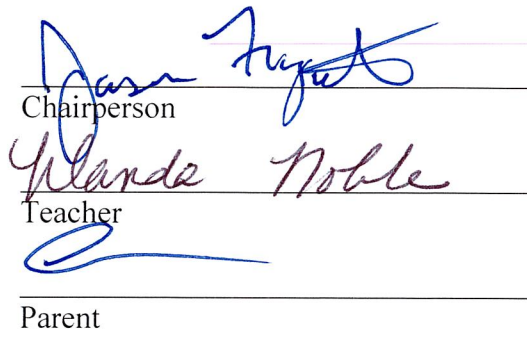 Jason
Chairperson
Yolanda Noble
Teacher
Parent